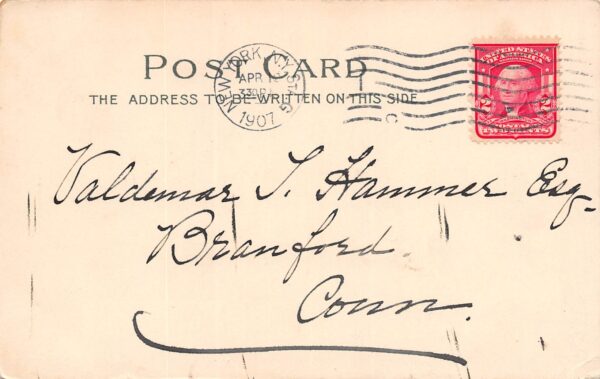 POST CARD
THE ADDRESS TO BE WRITTEN ON THIS SIDE
NEW YORK, N.Y. STA. G
APR
330P
1907
C
UNITED STATES
OF AMERICA
2 2
POSTAGE
TWO CENTS
Valdemar T. Hammer Esq-
Branford.
Conn.